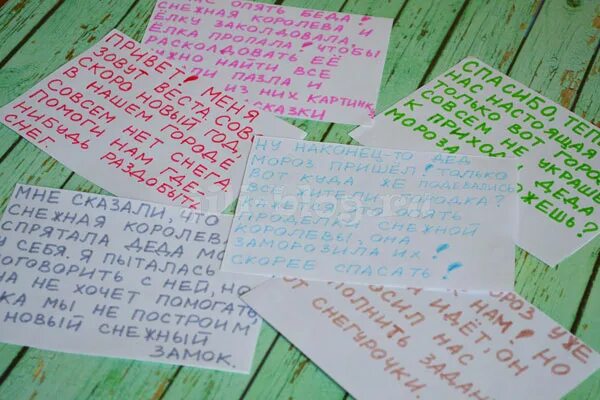 АС ОПЯТЬ БЕДА!
СНЕЖНАЯ КОРОЛЕВА И
ЁЛКУ ЗАКОЛДОВАЛА!
ЁЛКА ПРОПАЛА! ЧТОБЫ
РАСКОЛДОВАТЬ ЕЁ
УЖНО НАЙТИ ВСЕ
ЛИ ПАЗЛА И
ИЗ НИХ КАРТИНК
СКАЗКИ
ПРИВЕТ! МЕНЯ
ЗОВУТ ВЕСТА СОВ
СКОРО НОВЫЙ ГОД,
В НАШЕМ ГОРОДЕ
СОВСЕМ НЕТ СНЕГА
ПОМОГИ НАМ ГДЕ-
НИБУДЬ РАЗДОБЫТЬ
СНЕГ.
СПАСИБО, ТЕПЕ
НАС НАСТОЯЩАЯ
ТОЛЬКО ВОТ ГОРО
СОВСЕМ НЕ УКРАШЕ
К ПРИХО ДЕДА
МОРОЗА ОЖЕШЬ?
НУ НАКОНЕЦ-ТО ДЕД
МОРОЗ ПРИШЁЛ! ТОЛЬКО
ВОТ КУДА ЖЕ ПОДЕВАЛИСЬ
ВСЕ ЖИТЕЛИ ГОРОДКА?
ОПЯТЬ
ПРОДЕЛКИ СНЕЖНОЙ
КОРОЛЕВЫ, ОНА
ЗАМОРОЗИЛА ИХ!
СКОРЕЕ СПАСАТЬ!
МНЕ СКАЗАЛИ, ЧТО
СНЕЖНАЯ КОРОЛЕВ
СПРЯТАЛА ДЕДА МО
СЕБЯ. Я ПЫТАЛАСЬ
ОГОВОРИТЬ С НЕЙ, НО
НА НЕ ХОЧЕТ ПОМОГАТЬ
КА МЫ НЕ ПОСТРОИМ
НОВЫЙ СНЕЖНЫЙ
ЗАМОК.
К НАМ! НО
МОРОЗ УЖЕ
ИДЁТ, ОН
ОСИЛ НАС
ПОЛНИТЬ ЗАДАН
ОТ СНЕГУРОЧКИ.